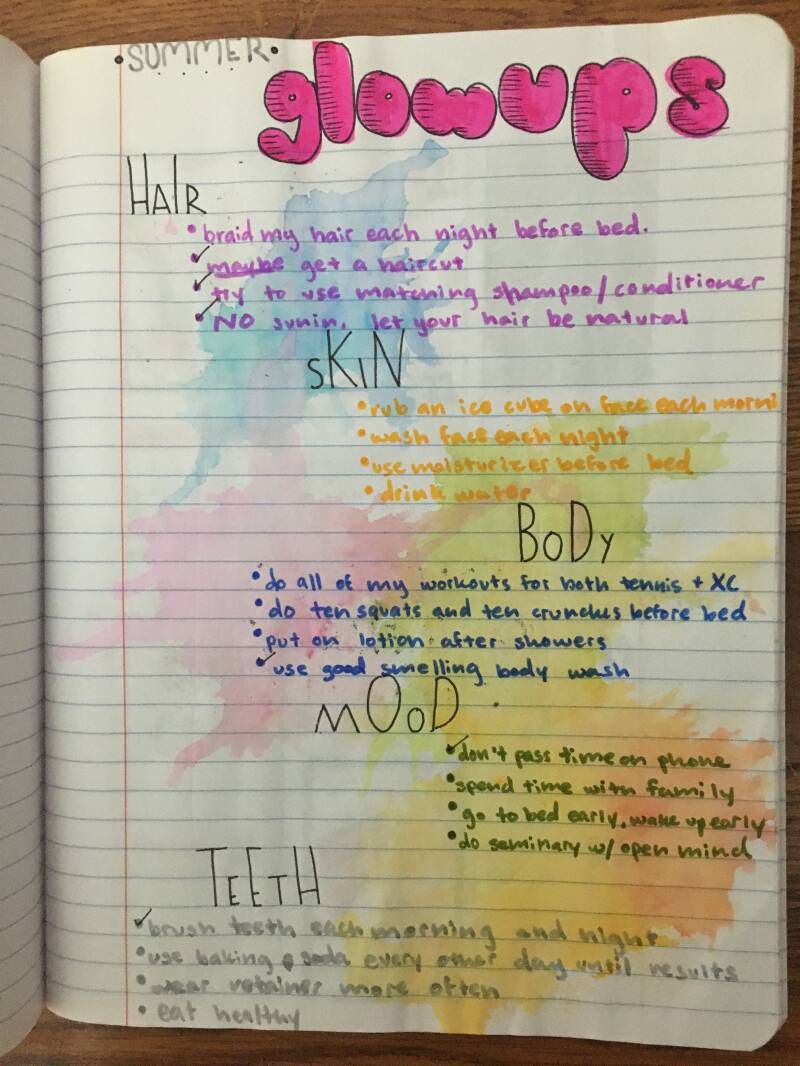 • SUMMER •
glowups
HAIR
• braid my hair each night before bed.
✓ maybe get a haircut
✓ try to use matching shampoo/conditioner
✓ NO sunin, let your hair be natural
SKIN
• rub an ice cube on face each morni
• wash face each night
• use moisturizer before bed
• drink water
BODY
• do all of my workouts for both tennis + XC
• do ten squats and ten crunches before bed
• put on lotion after showers
✓ use good smelling body wash
MOOD
✓ don't pass time on phone
• spend time with family
• go to bed early, wake up early
• do seminary w/ open mind
TEETH
✓ brush teeth each morning and night
• use baking soda every other day until results
• wear retainer more often
• eat healthy